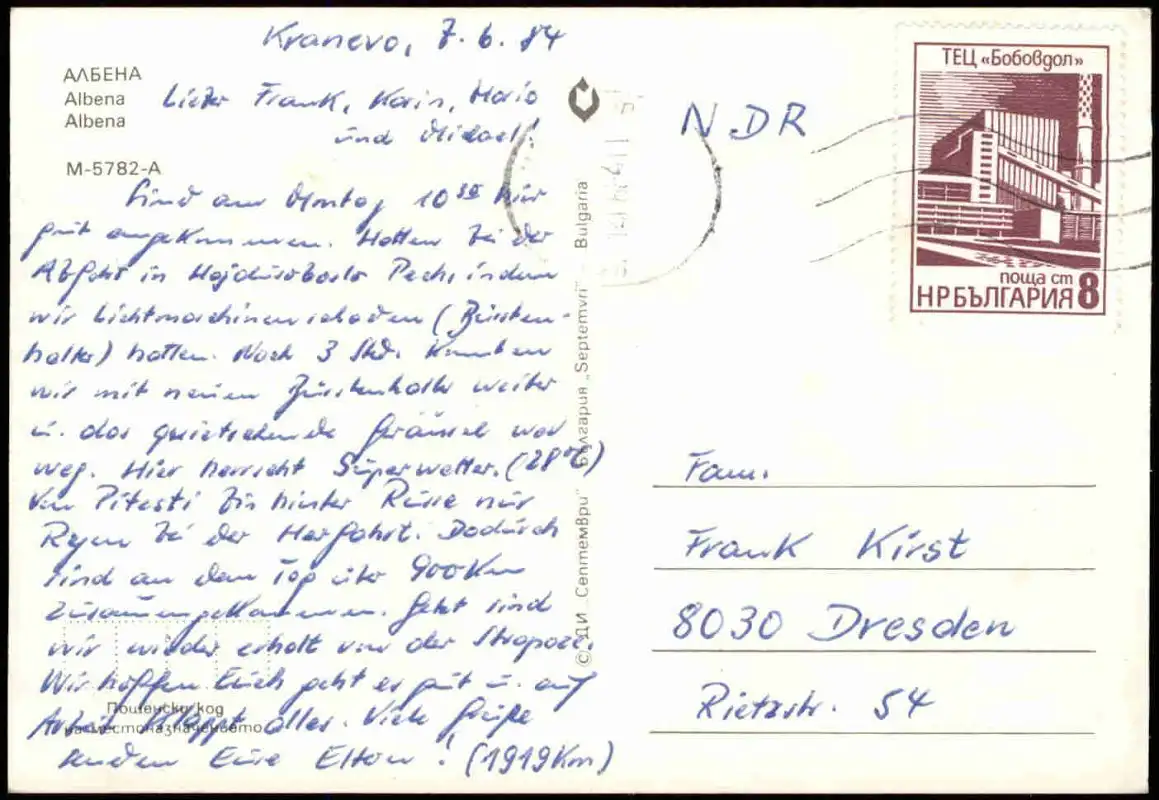 Kranevo, 7.6.84
АЛБЕНА
Albena
Albena
M-5782-A
Lieber Frank, Karin, Mario
und Michael!
Sind am Montag 10 30 hier
gut angekommen. Hatten bei der
Abfahrt in Hajduszoboslo Pech, indem
wir Lichtmaschinenschaden (Bürsten-
halter) hatten. Nach 3 Std. konnten
wir mit neuen Bürstenhalter weiter
u. das quietschende Geräusch war
weg. Hier herrscht Superwetter. (28°C)
Von Pitesti bis hinter Russe nur
Regen bei der Herfahrt. Dadurch
sind an dem Tag über 900 Km
zusammengekommen. Jetzt sind
wir wieder erholt von der Strapaze.
Wir hoffen Euch geht es gut u. auf
Arbeit klappt alles. Viele Grüße
senden Eure Eltern! (1919 Km)
Пощенски код
на местоназначението
© ДИ „Септември“ България „Septemvri“ Bulgaria
NDR
ТЕЦ «Бобовдол»
поща ст
НР БЪЛГАРИЯ 8
Fam.
Frank Kirst
8030 Dresden
Rietzstr. 54